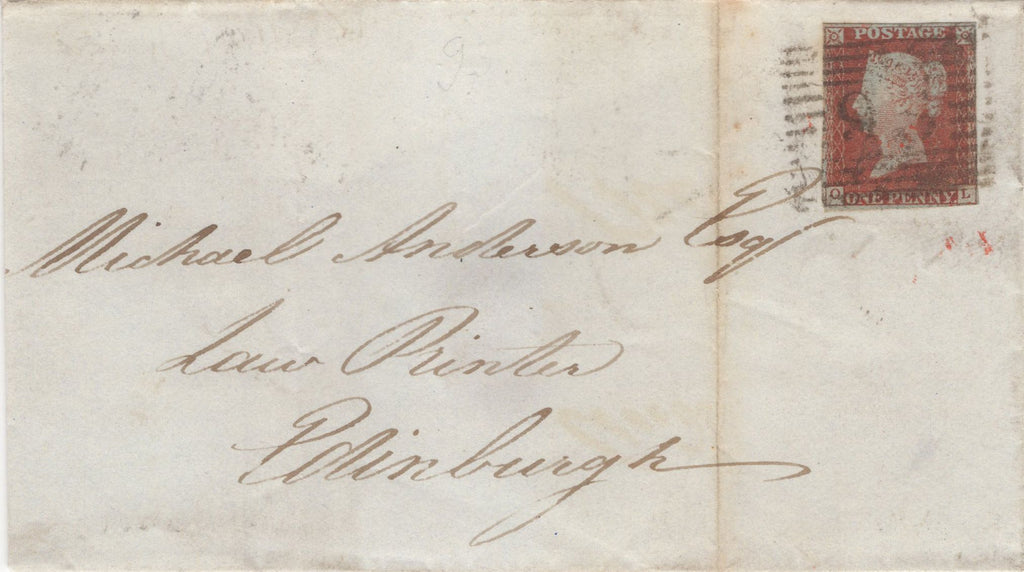 9
POSTAGE
O ONE PENNY. L
Michael Anderson Esqr
Law Printer
Edinburgh